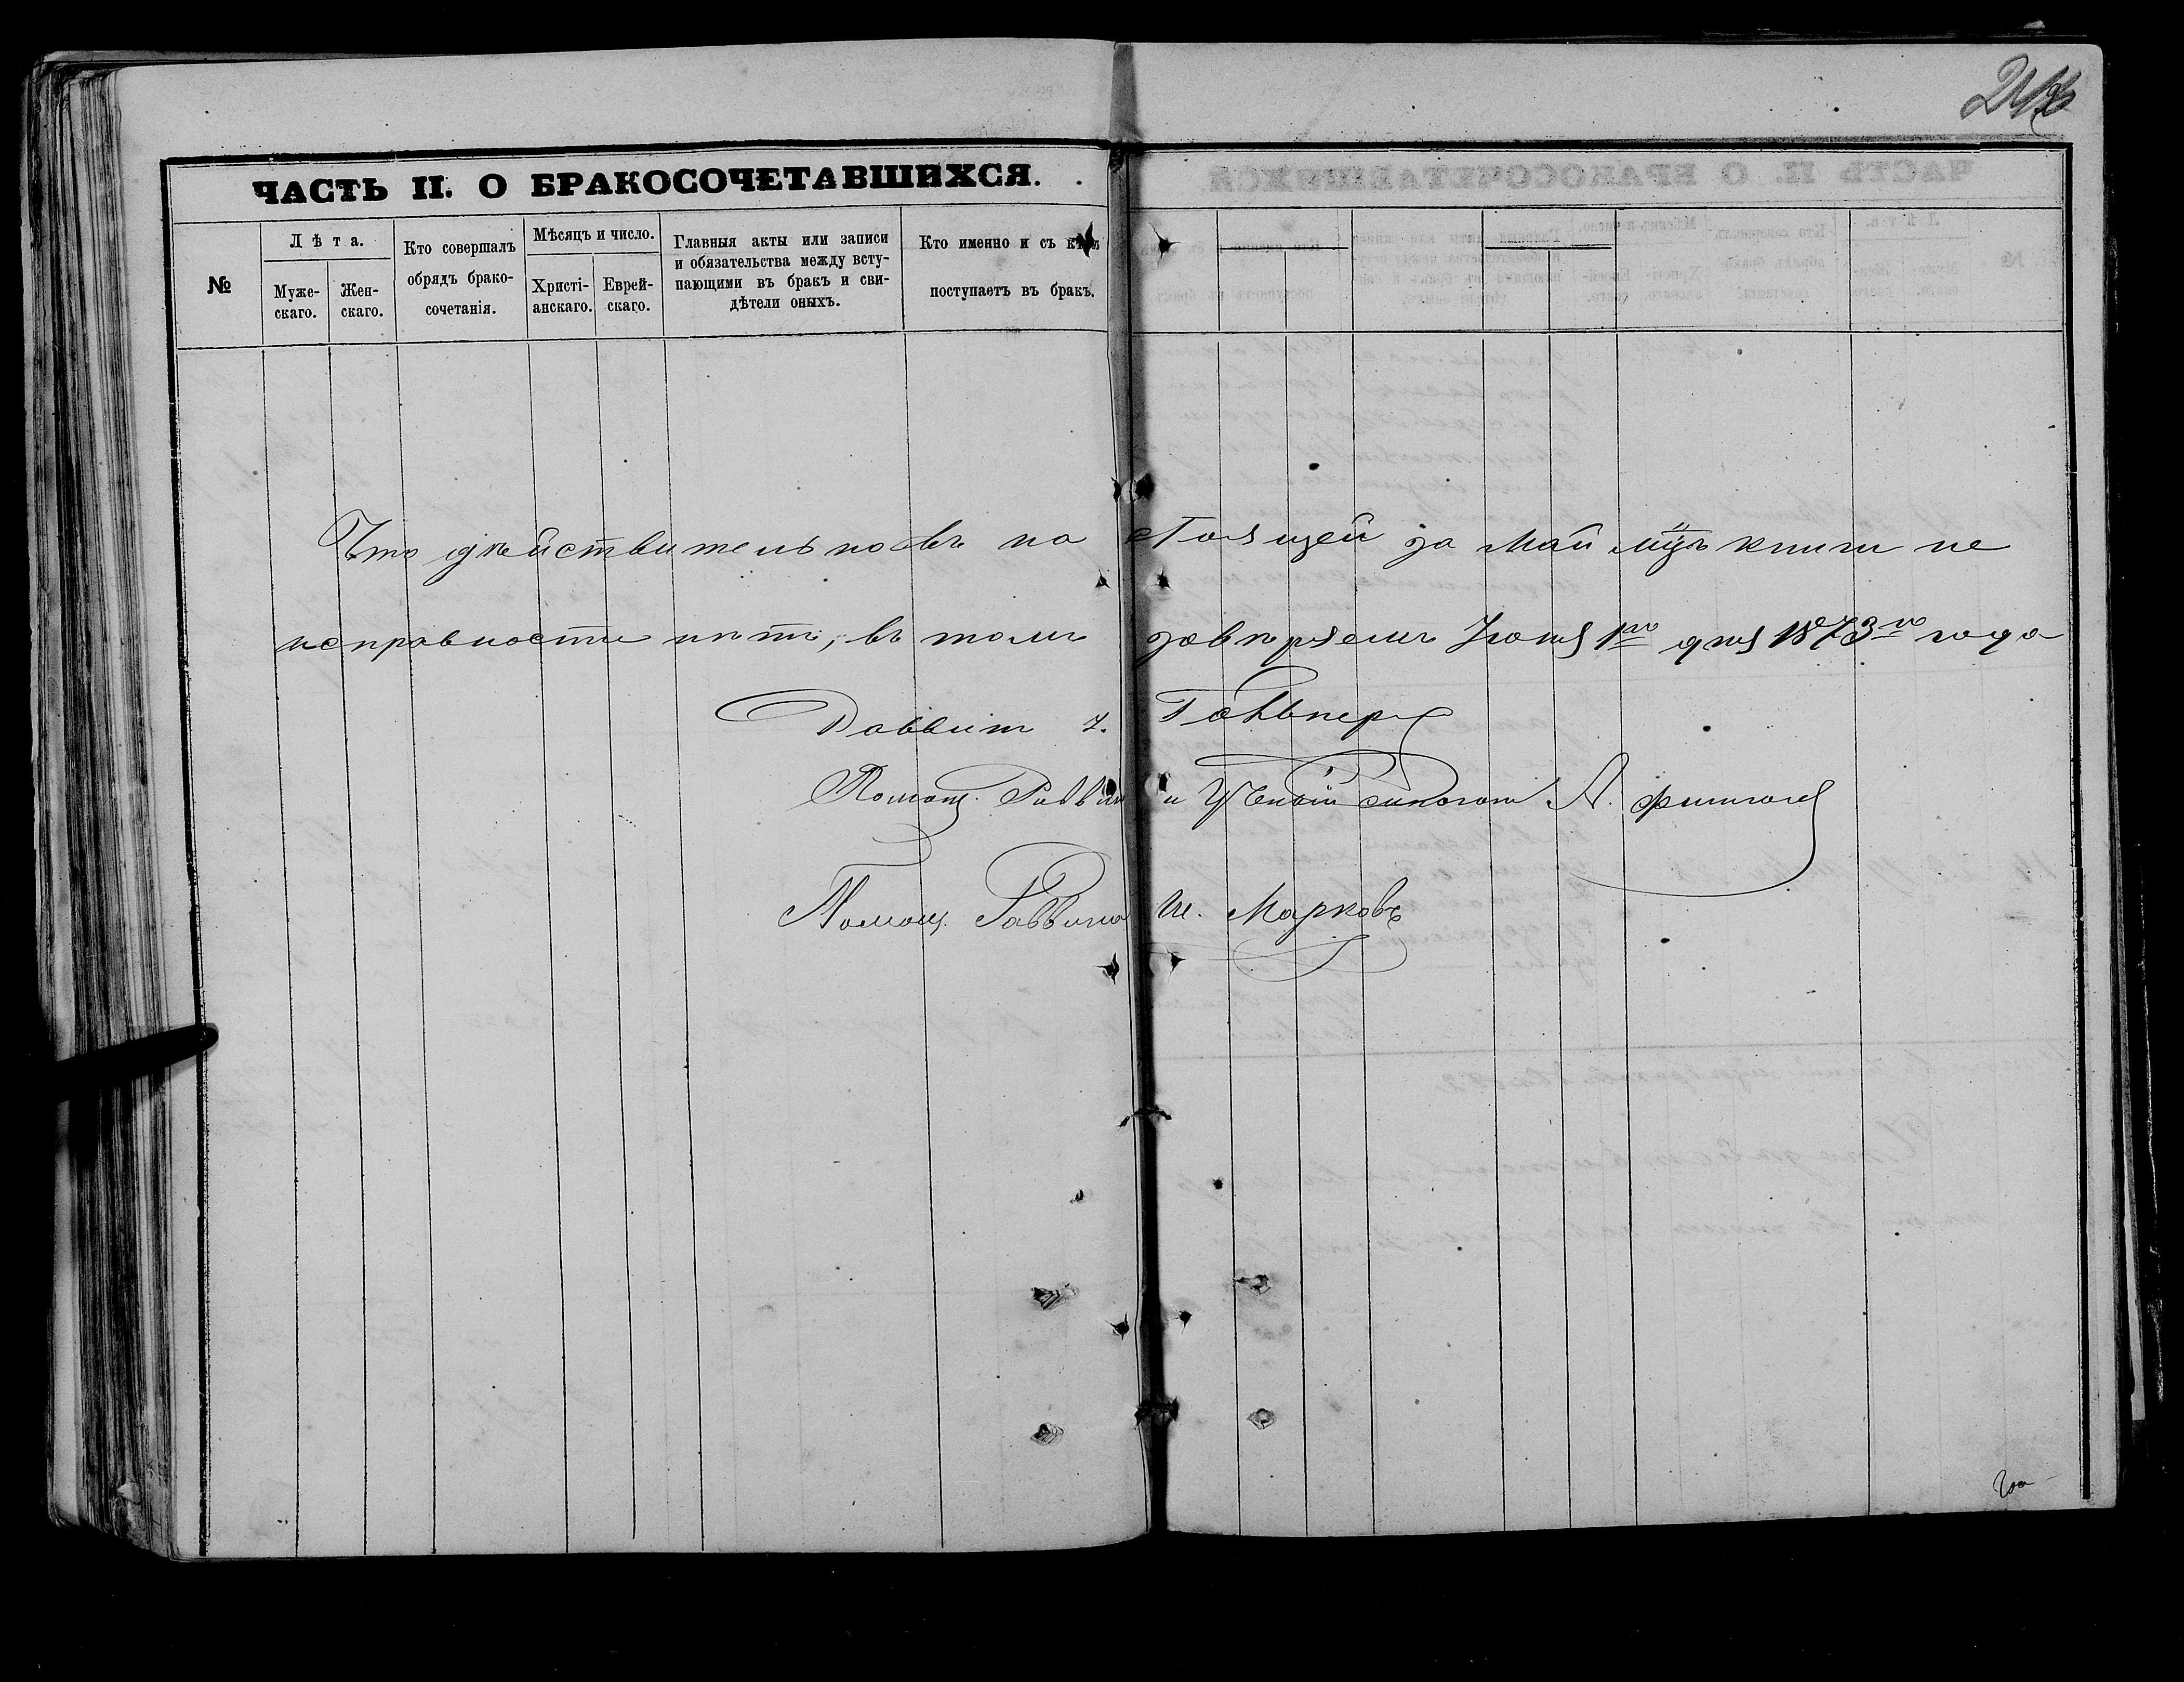 ЧАСТЬ II. О БРАКОСОЧЕТАВШИХСЯ.
№
Лѣта.
Муже-
скаго.
Жен-
скаго.
Кто совершалъ
обрядъ брако-
сочетанія.
Мѣсяцъ и число.
Христі-
анскаго.
Еврей-
скаго.
Главныя акты или записи
и обязательства между всту-
пающими въ бракъ и сви-
дѣтели оныхъ.
Кто именно и съ кѣмъ
поступаетъ въ бракъ.
Что дѣйствительно въ на стоящей за Май мцъ книги не
исправности нѣтъ, въ томъ завѣряемъ Іюня 1го дня 1873го года
Раввинъ
Помощ. Раввина и Ученый А.
Помощ. Раввина Ш. Марковъ